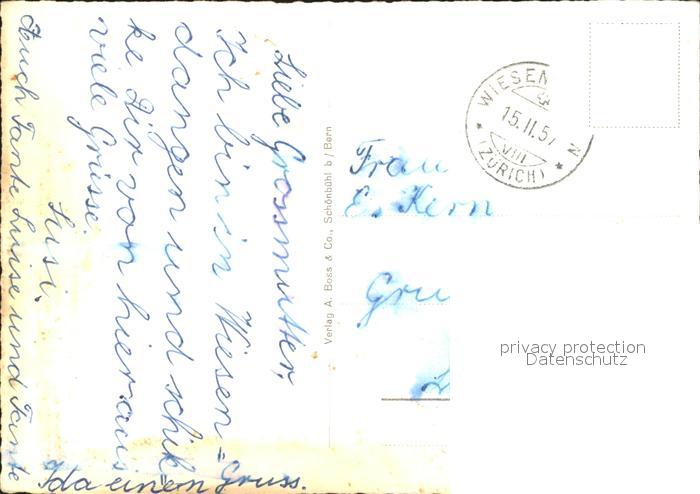 Liebe Grossmutter,
Ich bin in Wiesen=
dangen und schik=
ke Dir von hier aus
viele Grüsse.
Susi.
Auch Tante Luise und Tante
Ida einen Gruss.
Verlag A. Boss & Co., Schönbühl b/Bern
WIESEN N
15.II.57
VIII
(ZÜRICH)
Frau
E. Kern
Gru
privacy protection
Datenschutz